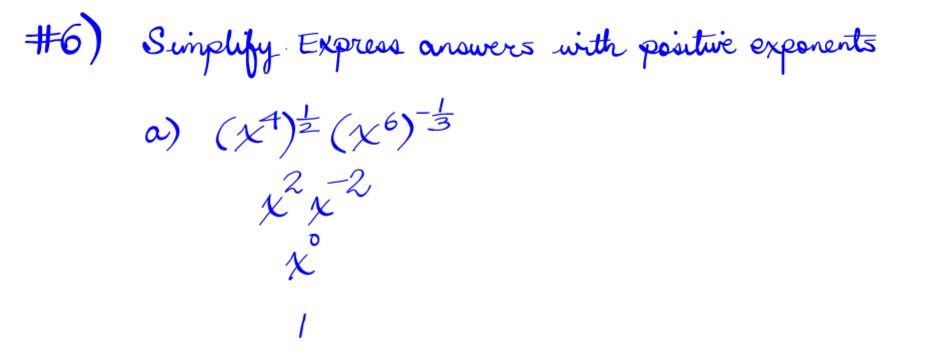 #6) Simplify. Express answers with positive exponents
a) (x⁴)^½ (x⁶)^-⅓
x² x⁻²
x⁰
1